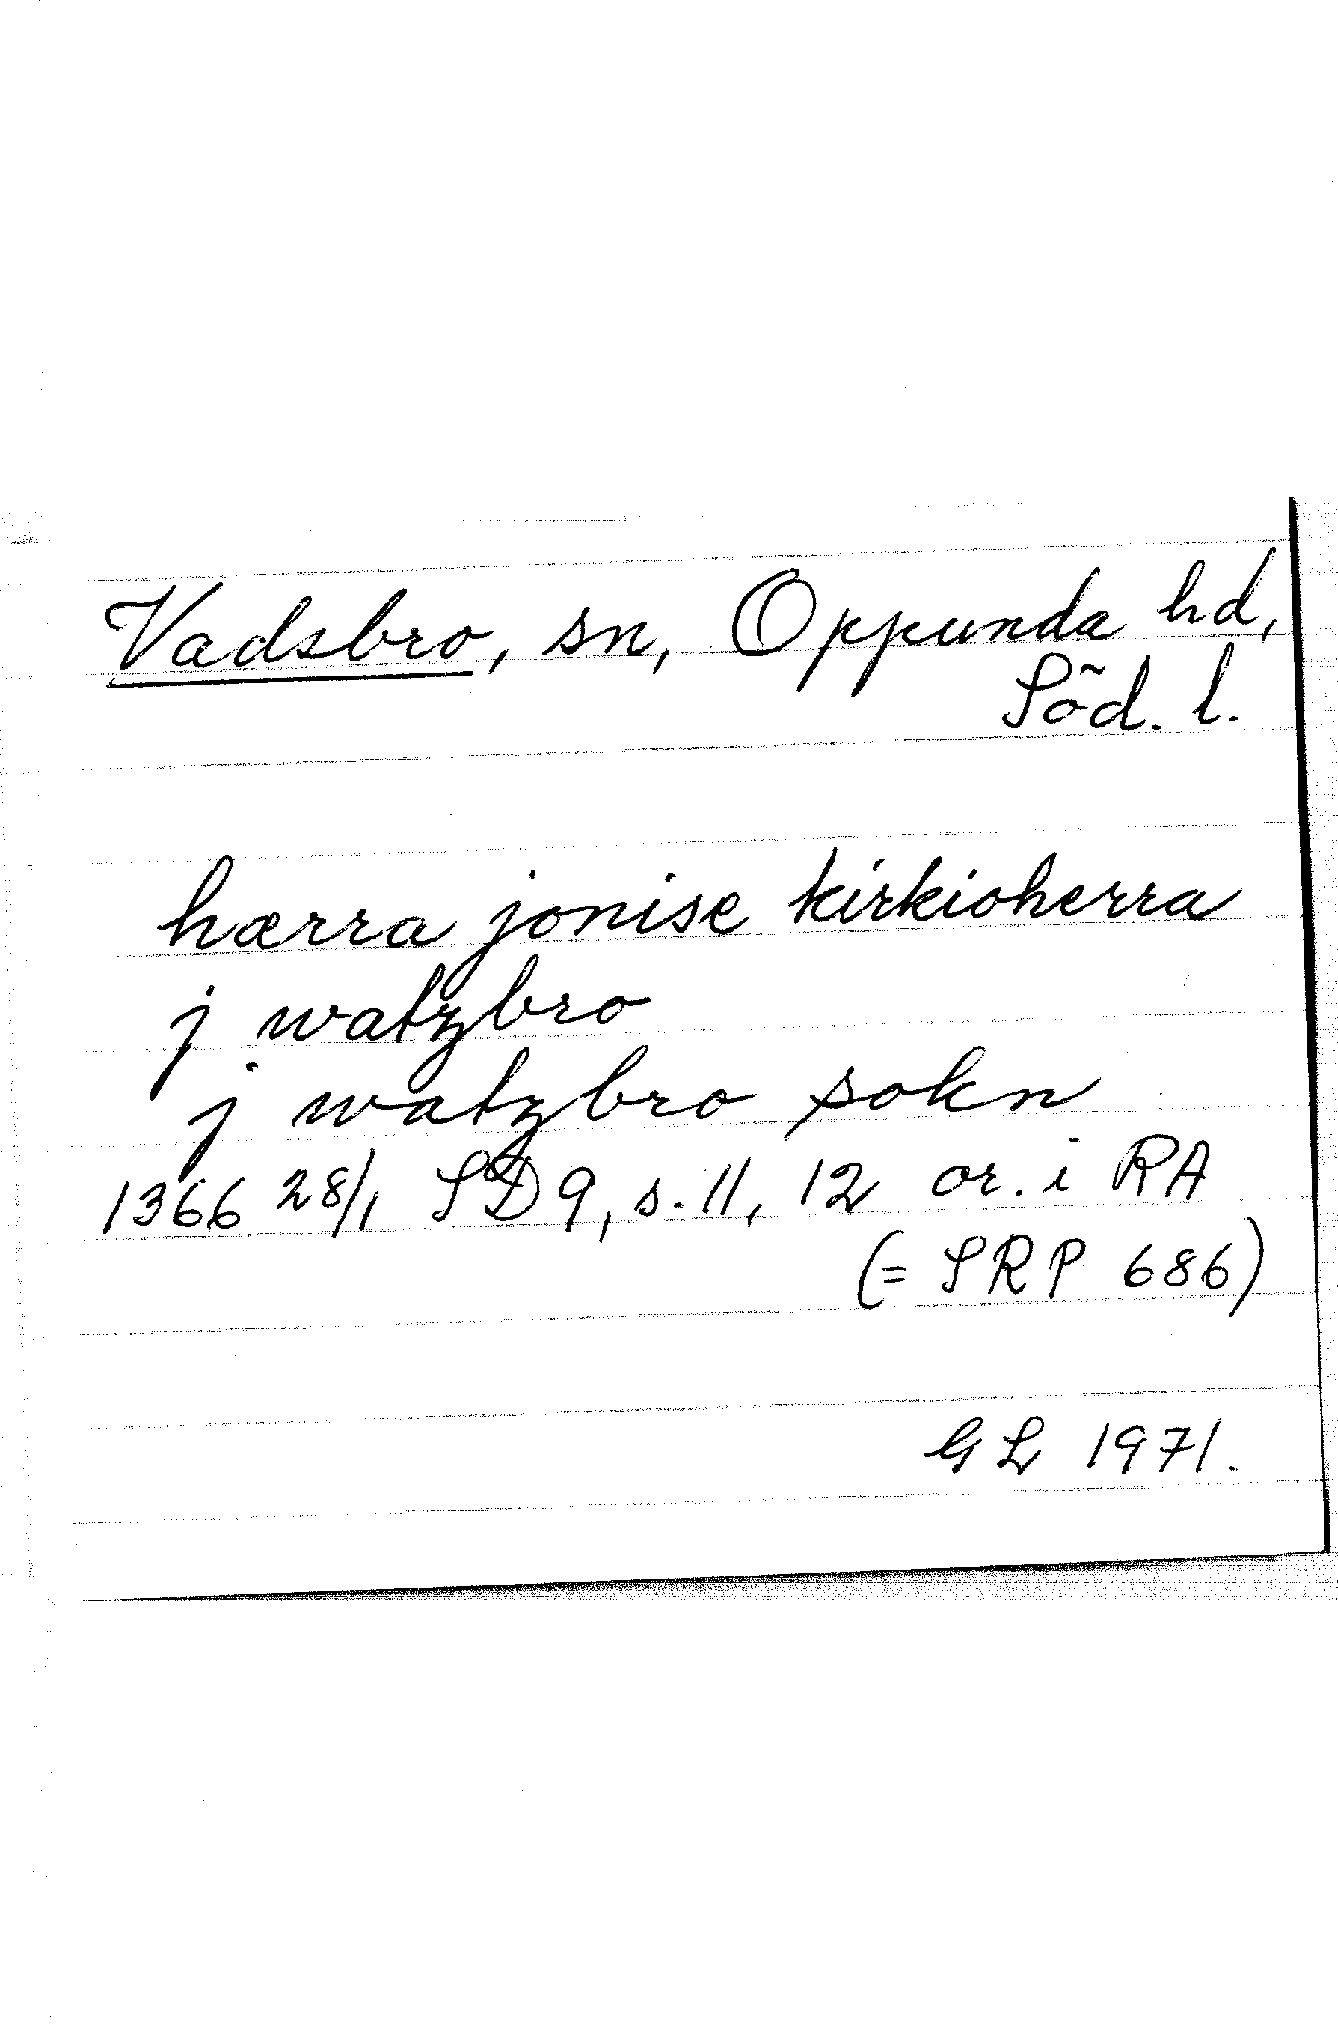 Vadsbro, sn, Oppunda hd,
Söd. l.
hærra jonise kirkioherra
j watzbro
j watzbro sokn
1366 28/1 SD 9, s. 11, 12 or. i RA
(= SRP 686)
GL 1971.